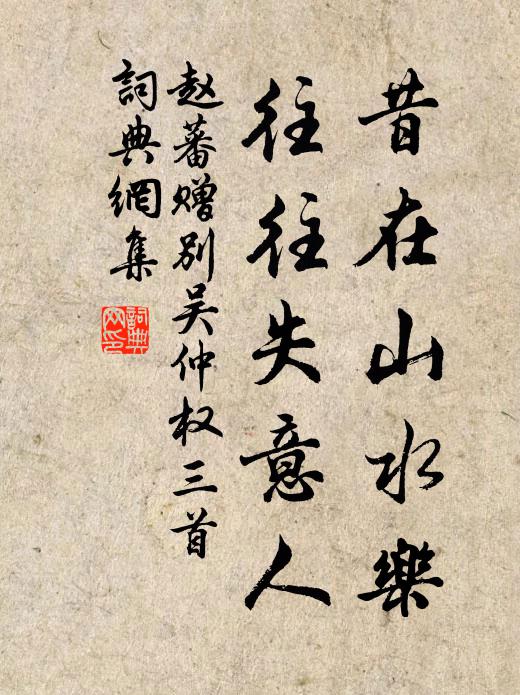 昔在山水樂
往往失意人
赵蕃赠别吴仲权三首
詞典網集
詞典網印